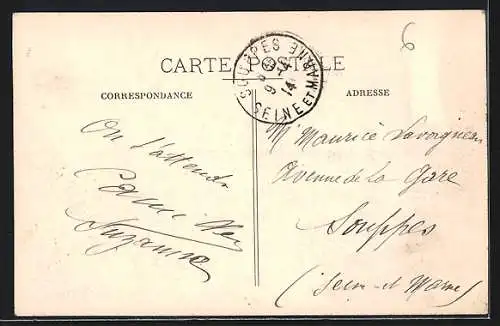 6
CARTE POSTALE
SOUPPES
9-4
14
SEINE ET MARNE
CORRESPONDANCE
ADRESSE
On t'attend
Suzanne
Mr Maurice
Avenue de la Gare
Souppes
(Seine et Marne)